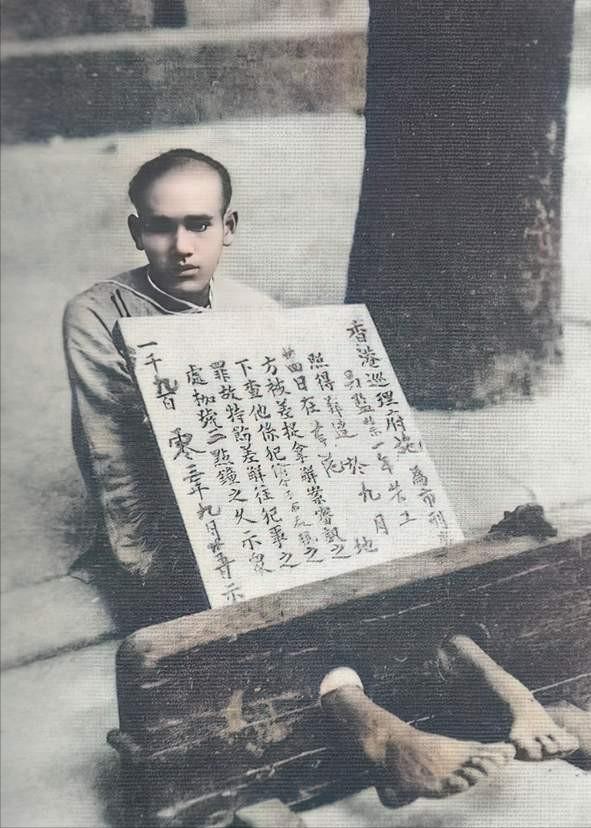 香港巡理府施為示刑
另監禁一年苦工
照得於九月
廿四日在地
方被差捉拿解案審訊之
下查他係犯
罪故特飭差解往犯事之
處枷號二點鐘之久示眾
一千九百零三年九月廿示